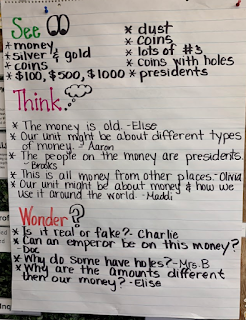 See
* money
* silver & gold
* coins
* $100, $500, $1000
* dust
* coins
* lots of #s
* coins with holes
* presidents
Think
* The money is old. -Elise
* Our unit might be about different types
of money. - Aaron
* The people on the money are presidents.
- Brooks
* This is all money from other places.-Olivia
* Our unit might be about money & how we
use it around the world. -Maddi
Wonder?
* Is it real or fake?- Charlie
* Can an emperor be on this money?
- Doc
* Why do some have holes?-Mrs.B
* Why are the amounts different
then our money?-Elise